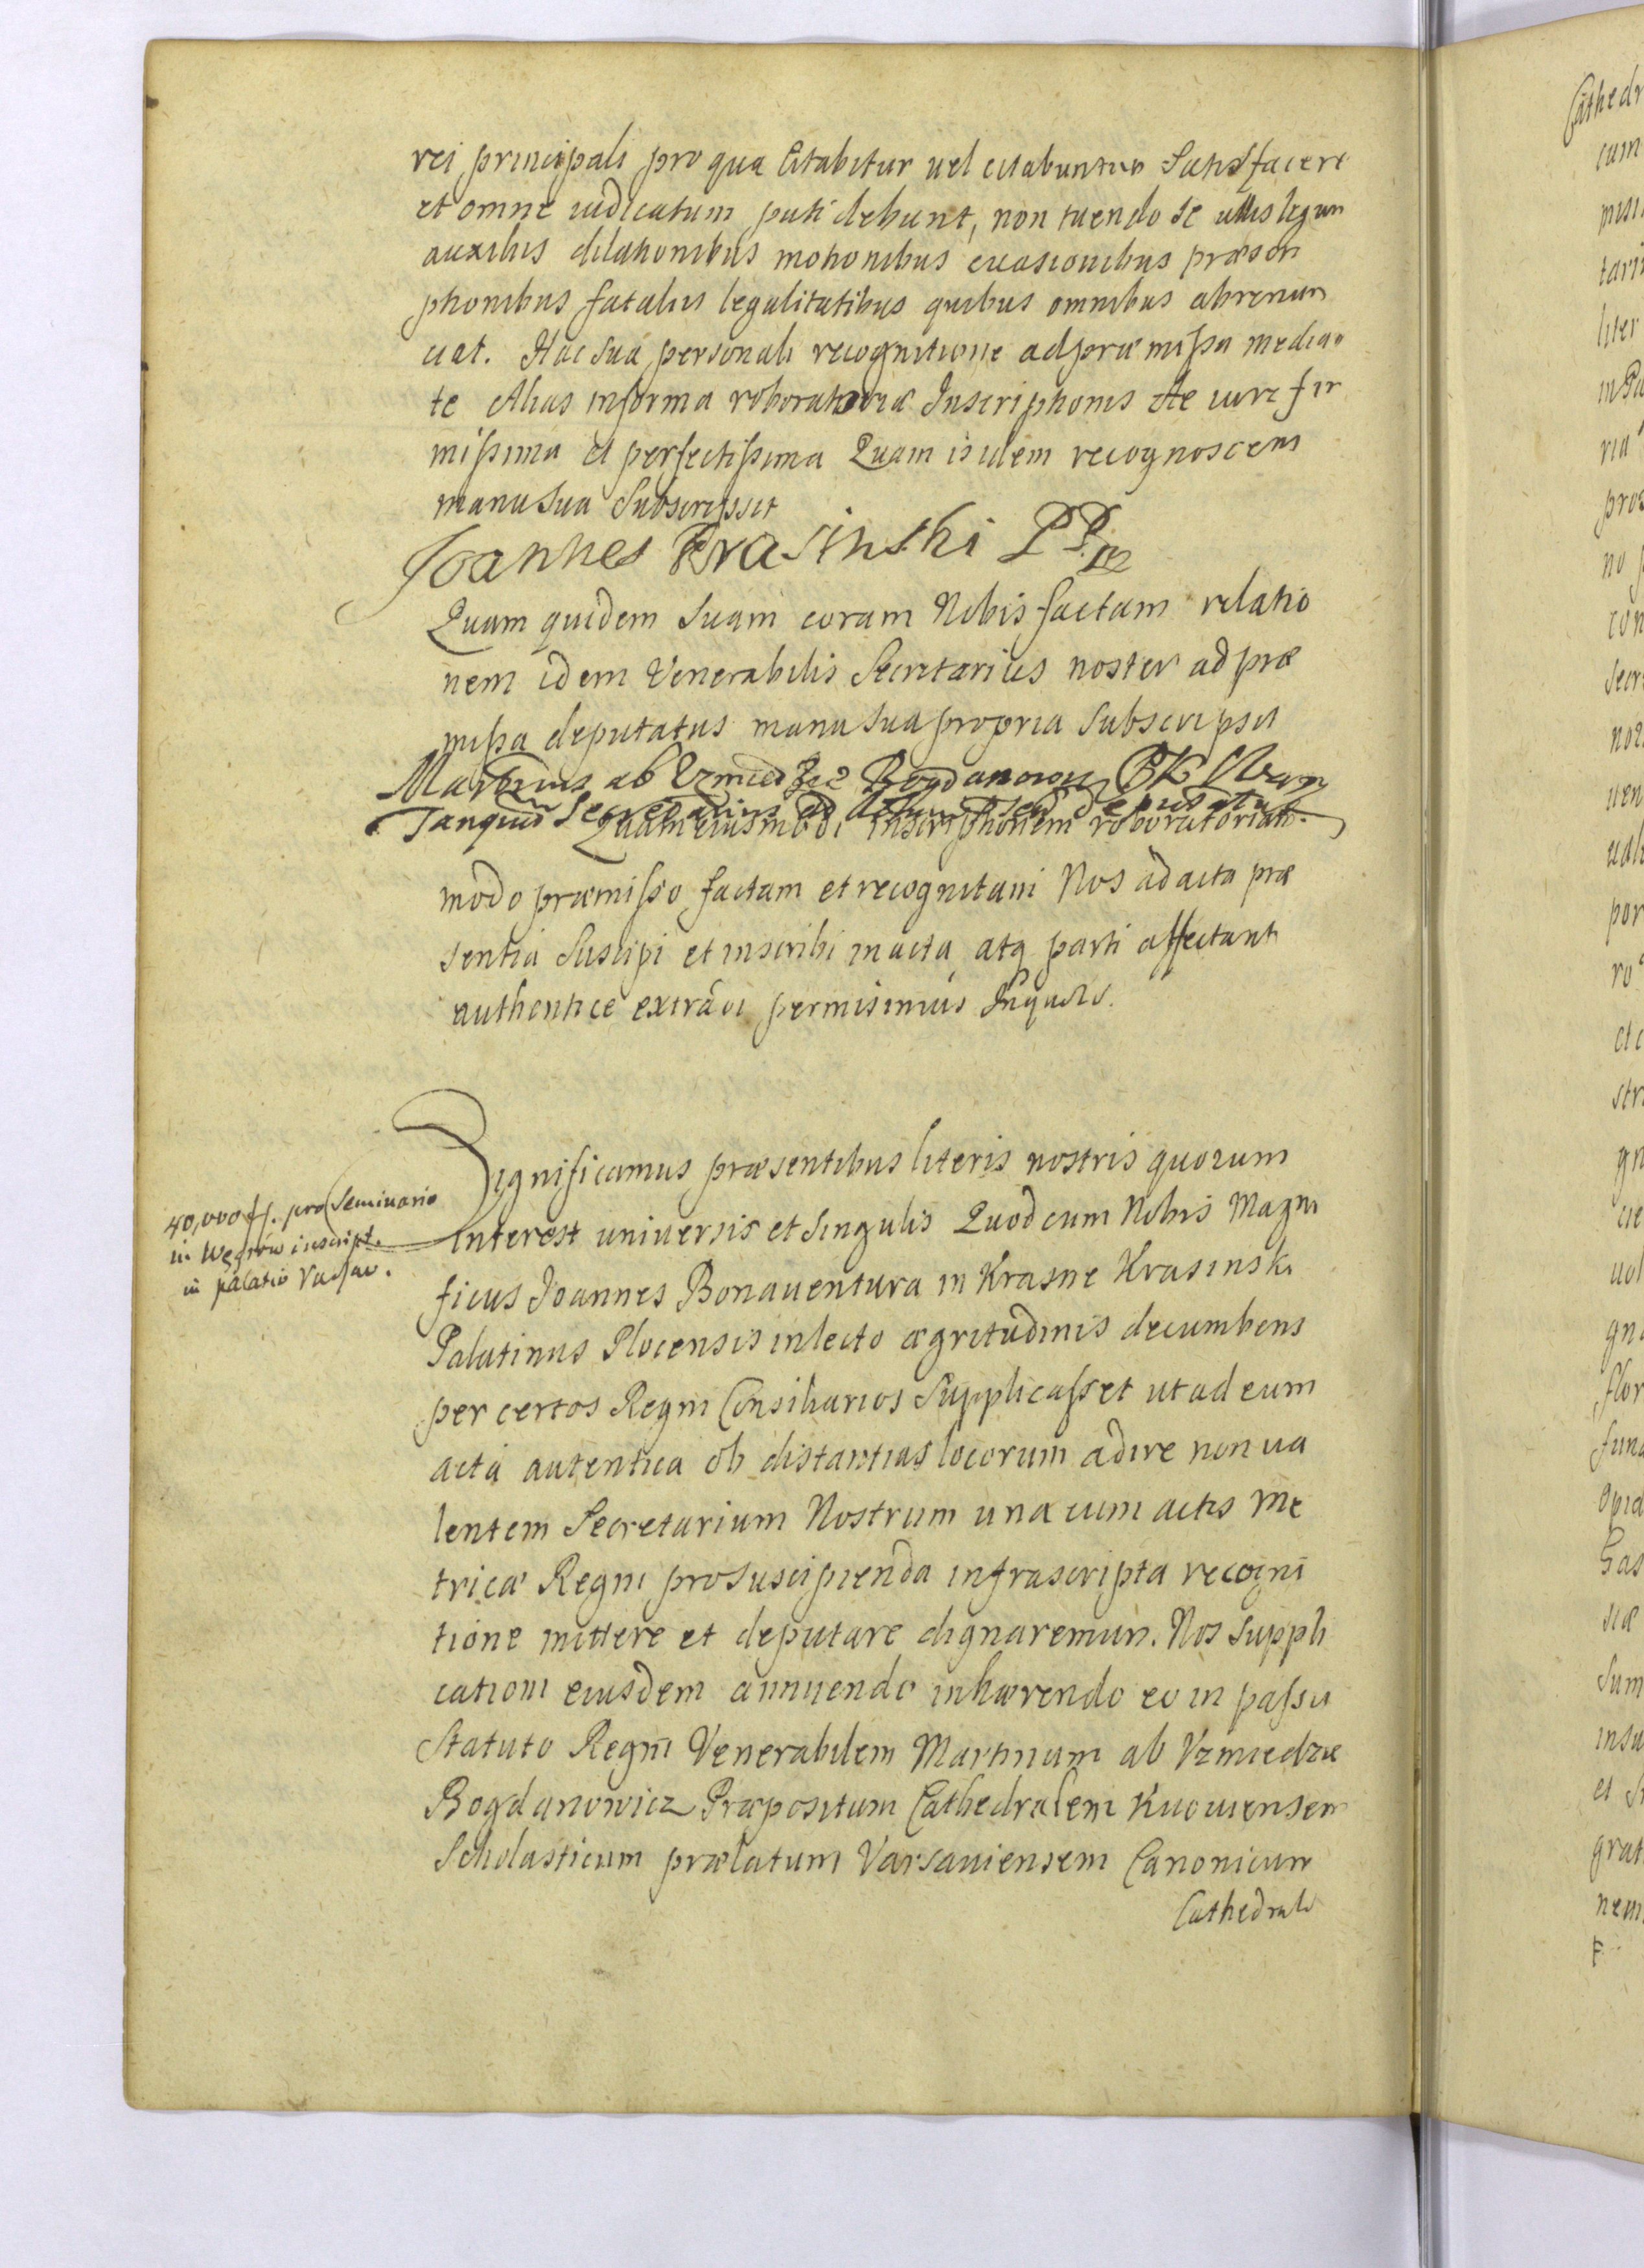 rei principali pro qua Citabitur uel citabuntur Satisfacere
et omne iudicatum pati debunt, non tuendo se ullis legum
auxiliis dilationibus motionibus euasionibus præscri
ptionibus fatalius legalitatibus quibus omnibus abrenun
ciat. Hac sua personali recognitione ad præmissa median
te Alias in forma roboratoriæ Inscriptionis de iure fir
missima et perfectissima Quam isidem recognoscens
manu sua Subscripsit
Joannes Krasinski PPm
Quam quidem Suam coram Nobis factam relatio
nem idem Venerabilis Secretarius noster ad præ
missa deputatus manu sua propria Subscripsit
Martinus ab Vzmiedze Bogdanowicz PK
Tanquam Secretarius ad deputatus
Quam eiusmodi inscriptionem roboratoriam
modo præmisso factam et recognitam Nos ad acta præ
sentia Suscipi et inscribi in acta atq parti affectanti
authentice extradi permisimus Inquors.
Significamus præsentibus literis nostris quorum
interest uniuersis et singulis Quod cum Nobis Magni
ficus Joannes Bonauentura in Krasne Krasinski
Palatinus Plocensis in lecto ægritudinis decumbens
per certos Regni Consiliarios Supplicasset ut ad eum
acta autentica ob distantias locorum adire non ua
lentem Secretarium Nostrum una cum actis Me
tricæ Regni pro suscipienda infrascripta recogni
tione mittere et deputare dignaremur. Nos suppli
cationi eiusdem annuendo inhærendo eo in passu
Statuto Regni Venerabilem Martinum ab Vzmiedze
Bogdanowicz Præpositum Cathedralem Kiiouiensem
Scholasticum prælatum Varsauiensem Canonicum
Cathedrale
40,000 fl. pro Seminario
in Węgrów inscript.
in palatio Varsav.